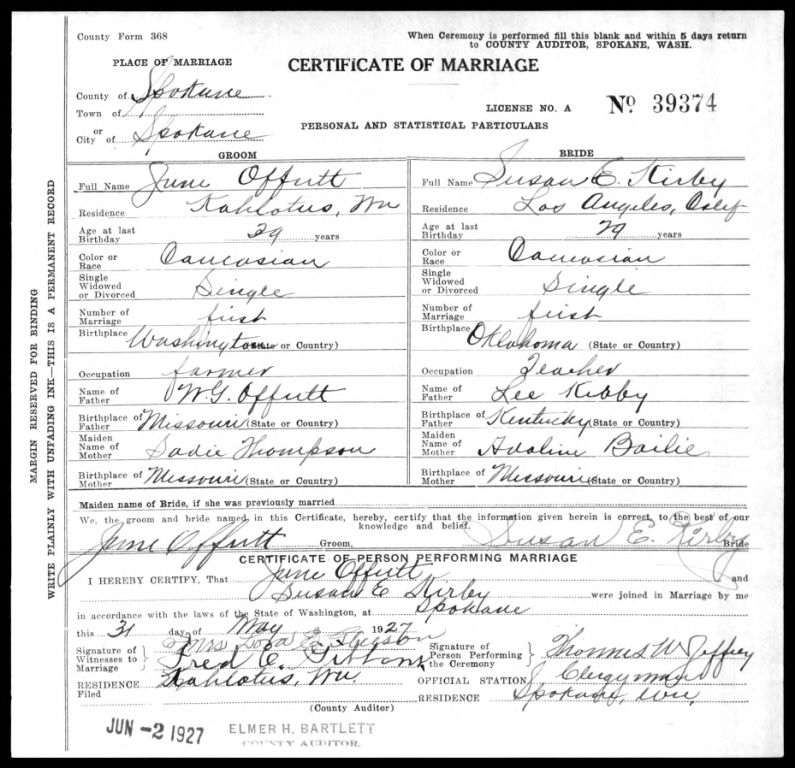 County Form 368
When Ceremony is performed fill this blank and within 5 days return
to COUNTY AUDITOR, SPOKANE, WASH.
PLACE OF MARRIAGE
CERTIFICATE OF MARRIAGE
County of Spokane
Town of
or
City of Spokane
LICENSE NO. A No 39374
PERSONAL AND STATISTICAL PARTICULARS
GROOM BRIDE
Full Name June Offutt Full Name Susan E. Kirby
Residence Kahlotus, Wn Residence Los Angeles, Calif
Age at last Birthday 29 years Age at last Birthday 29 years
Color or Race Caucasian Color or Race Caucasian
Single Widowed or Divorced Single Single Widowed or Divorced Single
Number of Marriage first Number of Marriage first
Birthplace Washington (State or Country) Birthplace Oklahoma (State or Country)
Occupation farmer Occupation Teacher
Name of Father W.G. Offutt Name of Father Lee Kirby
Birthplace of Father Missouri (State or Country) Birthplace of Father Kentucky (State or Country)
Maiden Name of Mother Sadie Thompson Maiden Name of Mother Adaline Bailie
Birthplace of Mother Missouri (State or Country) Birthplace of Mother Missouri (State or Country)
Maiden name of Bride, if she was previously married
We, the groom and bride named in this Certificate, hereby, certify that the information given herein is correct, to the best of our
knowledge and belief.
June Offutt Groom, Susan E. Kirby Bride
CERTIFICATE OF PERSON PERFORMING MARRIAGE
I HEREBY CERTIFY, That June Offutt and
Susan E Kirby were joined in Marriage by me
in accordance with the laws of the State of Washington, at Spokane
this 31 day of May 1927
Signature of Witnesses to Marriage } Mrs
Fred E.
Signature of Person Performing the Ceremony } Thomas W Jeffrey
RESIDENCE Kahlotus, Wn. OFFICIAL STATION Clergyman
Filed RESIDENCE Spokane, Wn.
(County Auditor)
JUN -2 1927 ELMER H. BARTLETT
COUNTY AUDITOR.
MARGIN RESERVED FOR BINDING
WRITE PLAINLY WITH UNFADING INK—THIS IS A PERMANENT RECORD